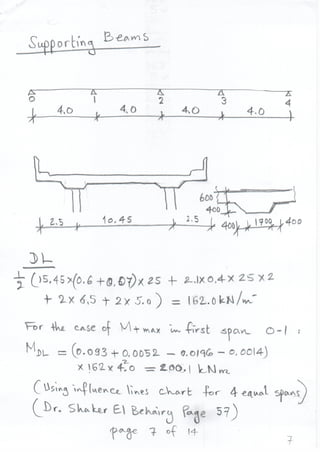 Supporting Beams
0 1 2 3 4
4.0 4.0 4.0 4.0
600
400
2.5 10.45 2.5 400 1700 400
DL
1/2 (15.45×(0.6 + 0.07)×25 + 2.1×0.4×25×2
+ 2×6.5 + 2×5.0) = 162.0 kN/m
For the case of M+max in first span 0-1:
MDL = (0.093 + 0.0052 - 0.0196 - 0.0014)
×162×4.0² = 200.1 kNm
(Using influence lines chart for 4 equal spans)
(Dr. Shaker El Behairy Page 57)
page 7 of 14
7